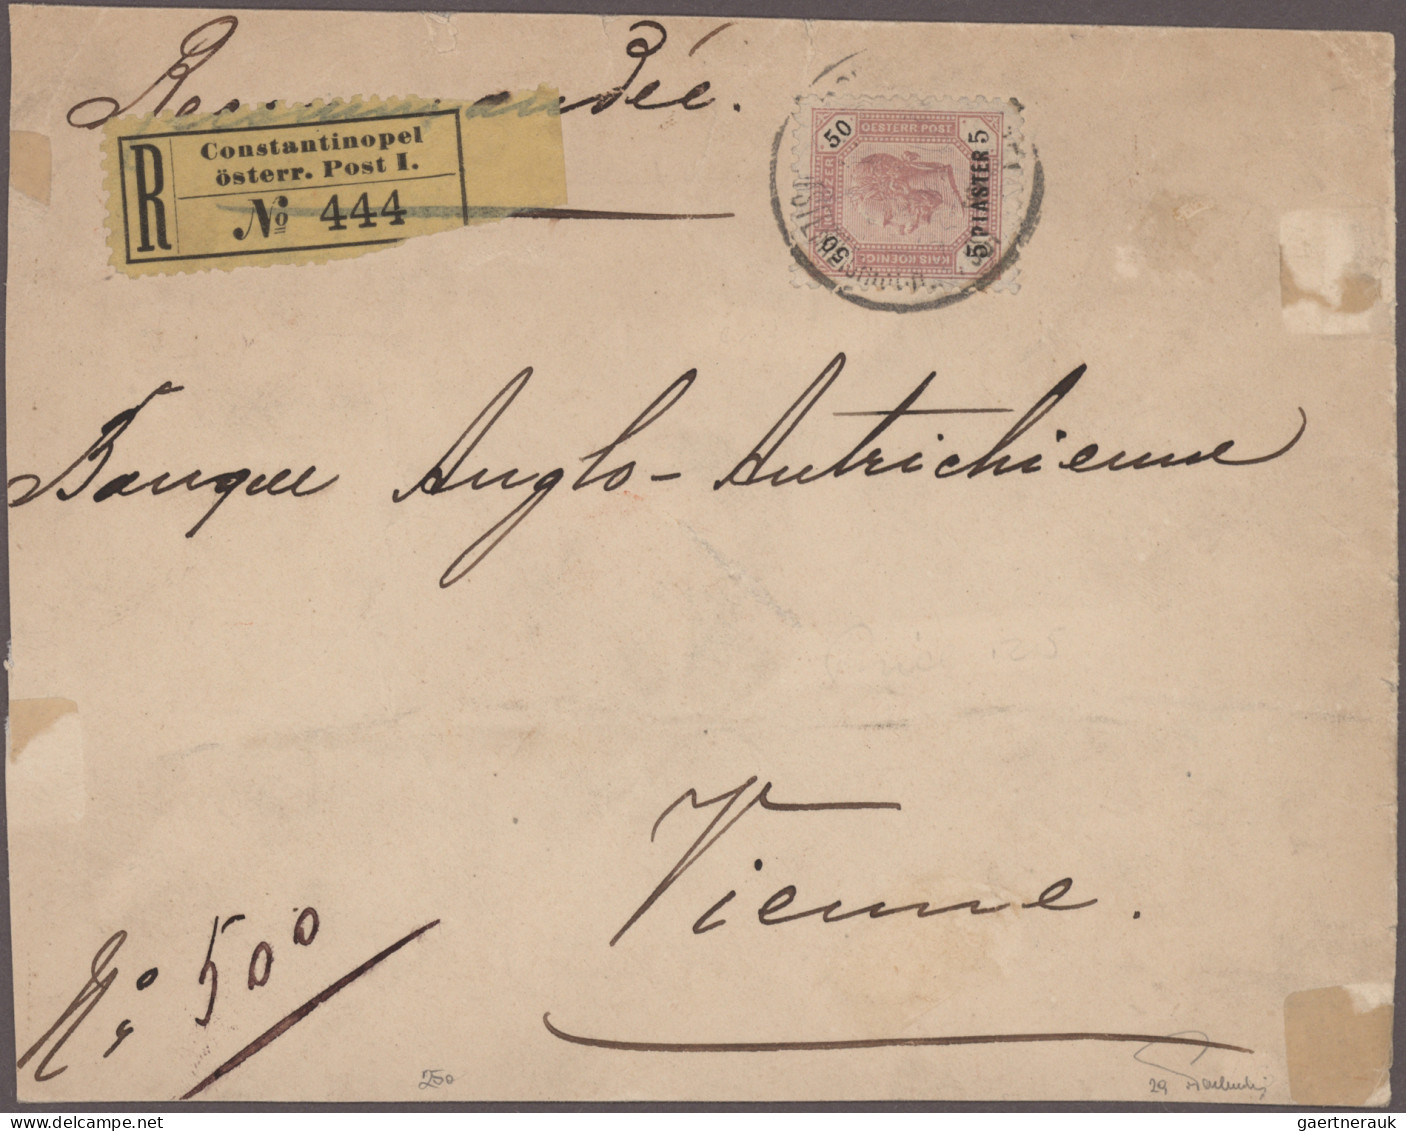 Recommandée.
R
Constantinopel
österr. Post I.
No 444
50
OESTERR. POST
5 PIASTER 5
50
KREUZER
KAIS. KOENIGL.
Banque Anglo-Autrichienne
Vienne.
No 500
250
29
gaertnerauk